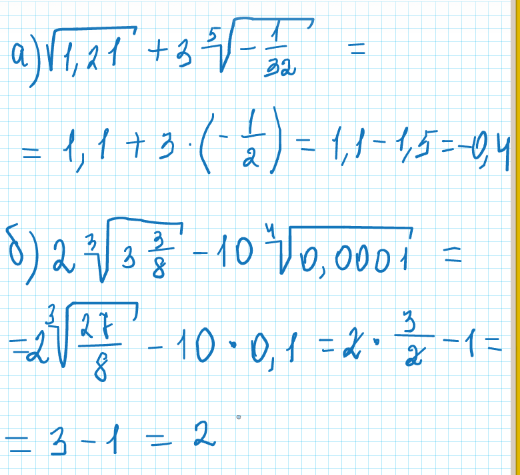 а) √1,21 + 3 ⁵√(-1/32) =
= 1,1 + 3 · (-1/2) = 1,1 - 1,5 = -0,4
б) 2 ³√(3 3/8) - 10 ⁴√0,0001 =
= 2 ³√(27/8) - 10 · 0,1 = 2 · 3/2 - 1 =
= 3 - 1 = 2